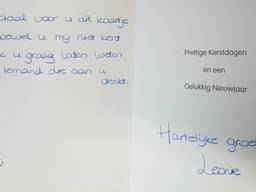 ciaal voor u dit kaartje
oewel u mij niet kent
k u graag laten weten
iemand die aan u
denkt.
Prettige Kerstdagen
en een
Gelukkig Nieuwjaar
Hartelijke groet
Leonie